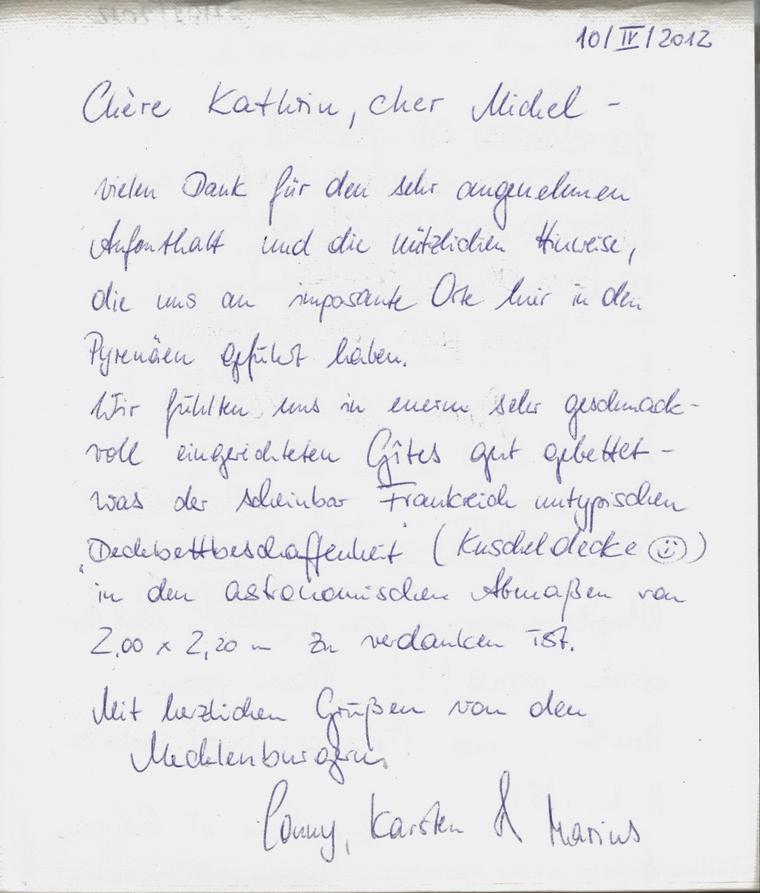 10/IV/2012
Chère Kathrin, cher Michel –
vielen Dank für den sehr angenehmen
Aufenthalt und die nützlichen Hinweise,
die uns an imposante Orte hier in den
Pyrenäen geführt haben.
Wir fühlten uns in eurem sehr geschmack-
voll eingerichteten Gîtes gut gebettet –
was der scheinbar Frankreich untypischen
„Deckbettbeschaffenheit" (Kuscheldecke ☺)
in den astronomischen Abmaßen von
2,00 x 2,20 m zu verdanken ist.
Mit herzlichen Grüßen von den
Mecklenburgern
Conny, Karsten & Marius